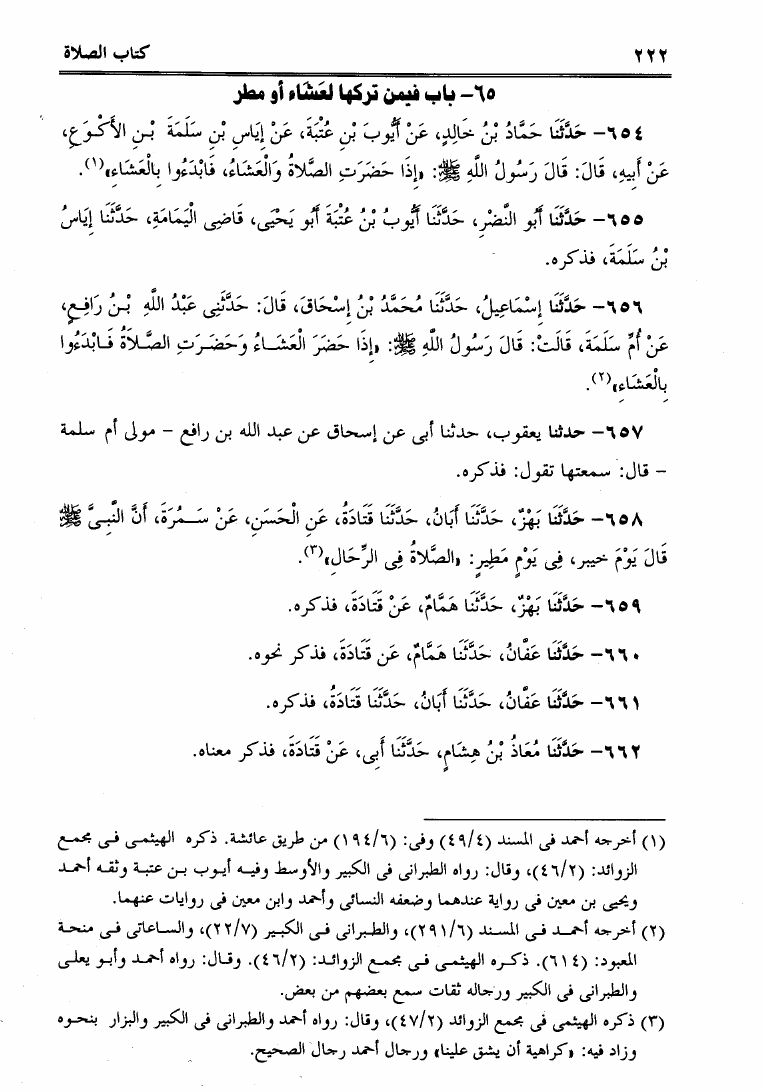 ٢٢٢ كتاب الصلاة
٦٥- باب فيمن تركها لعَشَاء أو مطر
٦٥٤- حَدَّثَنَا حَمَّادُ بْنُ خَالِدٍ، عَنْ أَيُّوبَ بْنِ عُتْبَةَ، عَنْ إِيَاسِ بْنِ سَلَمَةَ بْنِ الأَكْوَعِ،
عَنْ أَبِيهِ، قَالَ: قَالَ رَسُولُ اللَّهِ ﷺ: «إِذَا حَضَرَتِ الصَّلاةُ وَالْعَشَاءُ، فَابْدَءُوا بِالْعَشَاءِ»(١).
٦٥٥- حَدَّثَنَا أَبُو النَّضْرِ، حَدَّثَنَا أَيُّوبُ بْنُ عُتْبَةَ أَبُو يَحْيَى، قَاضِى الْيَمَامَةِ، حَدَّثَنَا إِيَاسُ
بْنُ سَلَمَةَ، فذكره.
٦٥٦- حَدَّثَنَا إِسْمَاعِيلُ، حَدَّثَنَا مُحَمَّدُ بْنُ إِسْحَاقَ، قَالَ: حَدَّثَنِى عَبْدُ اللَّهِ بْنُ رَافِعٍ،
عَنْ أُمِّ سَلَمَةَ، قَالَتْ: قَالَ رَسُولُ اللَّهِ ﷺ: «إِذَا حَضَرَ الْعَشَاءُ وَحَضَرَتِ الصَّلاةُ فَابْدَءُوا
بِالْعَشَاءِ»(٢).
٦٥٧- حدثنا يعقوب، حدثنا أبى عن إسحاق عن عبد الله بن رافع - مولى أم سلمة
- قال: سمعتها تقول: فذكره.
٦٥٨- حَدَّثَنَا بَهْزٌ، حَدَّثَنَا أَبَانُ، حَدَّثَنَا قَتَادَةُ، عَنِ الْحَسَنِ، عَنْ سَمُرَةَ، أَنَّ النَّبِىَّ ﷺ
قَالَ يَوْمَ خيبر، فِى يَوْمٍ مَطِيرٍ: «الصَّلاةُ فِى الرِّحَالِ»(٣).
٦٥٩- حَدَّثَنَا بَهْزٌ، حَدَّثَنَا هَمَّامٌ، عَنْ قَتَادَةَ، فذكره.
٦٦٠- حَدَّثَنَا عَفَّانُ، حَدَّثَنَا هَمَّامٌ، عَن قَتَادَةَ، فذكر نحوه.
٦٦١- حَدَّثَنَا عَفَّانُ، حَدَّثَنَا أَبَانُ، حَدَّثَنَا قَتَادَةُ، فذكره.
٦٦٢- حَدَّثَنَا مُعَاذُ بْنُ هِشَامٍ، حَدَّثَنَا أَبِى، عَنْ قَتَادَةَ، فذكر معناه.
(١) أخرجه أحمد فى المسند (٤٩/٤) وفى: (١٩٤/٦) من طريق عائشة. ذكره الهيثمى فى مجمع
الزوائد: (٤٦/٢)، وقال: رواه الطبرانى فى الكبير والأوسط وفيه أيوب بن عتبة وثقه أحمد
ويحيى بن معين فى رواية عندهما وضعفه النسائى وأحمد وابن معين فى روايات عنهما.
(٢) أخرجه أحمد فى المسند (٢٩١/٦)، والطبرانى فى الكبير (٢٢/٧)، والساعاتى فى منحة
المعبود: (٦١٤). ذكره الهيثمى فى مجمع الزوائد: (٤٦/٢). وقال: رواه أحمد وأبو يعلى
والطبرانى فى الكبير ورجاله ثقات سمع بعضهم من بعض.
(٣) ذكره الهيثمى فى مجمع الزوائد (٤٧/٢)، وقال: رواه أحمد والطبرانى فى الكبير والبزار بنحوه
وزاد فيه: «كراهية أن يشق علينا» ورجال أحمد رجال الصحيح.